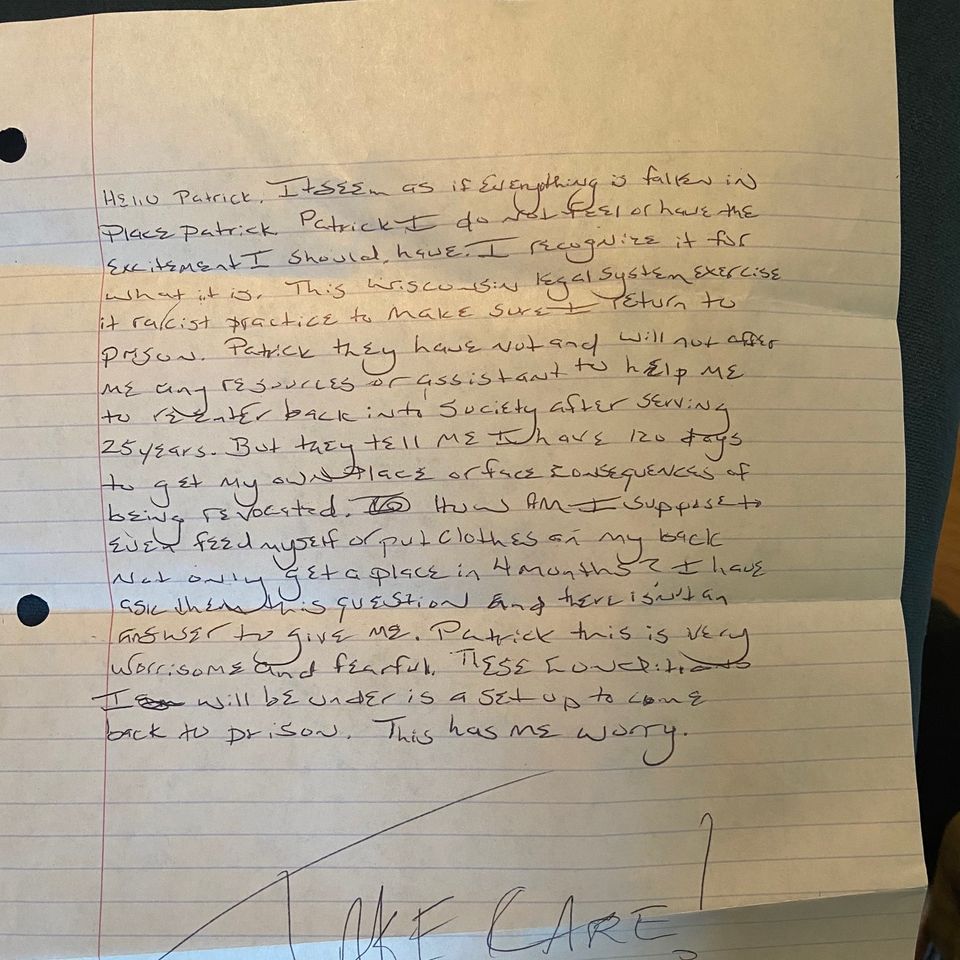 Hello Patrick. It seem as if Everything is fallen in
Place patrick Patrick I do Not feel or have the
Excitement I should have. I recognize it for
what it is. This Wisconsin legal system exercise
it racist practice to Make sure I return to
prison. Patrick they have not and will not offer
me any resources or assistant to help me
to reenter back into Society after serving
25 years. But they tell me I have 120 days
to get my own place or face consequences of
being revocated. How am I suppose to
even feed myself or put clothes on my back
Not only get a place in 4 months? I have
ask them this question and there isn't an
answer to give me. Patrick this is very
worrisome and fearful. These Conditions
I will be under is a set up to come
back to prison. This has me worry.
TAKE CARE!